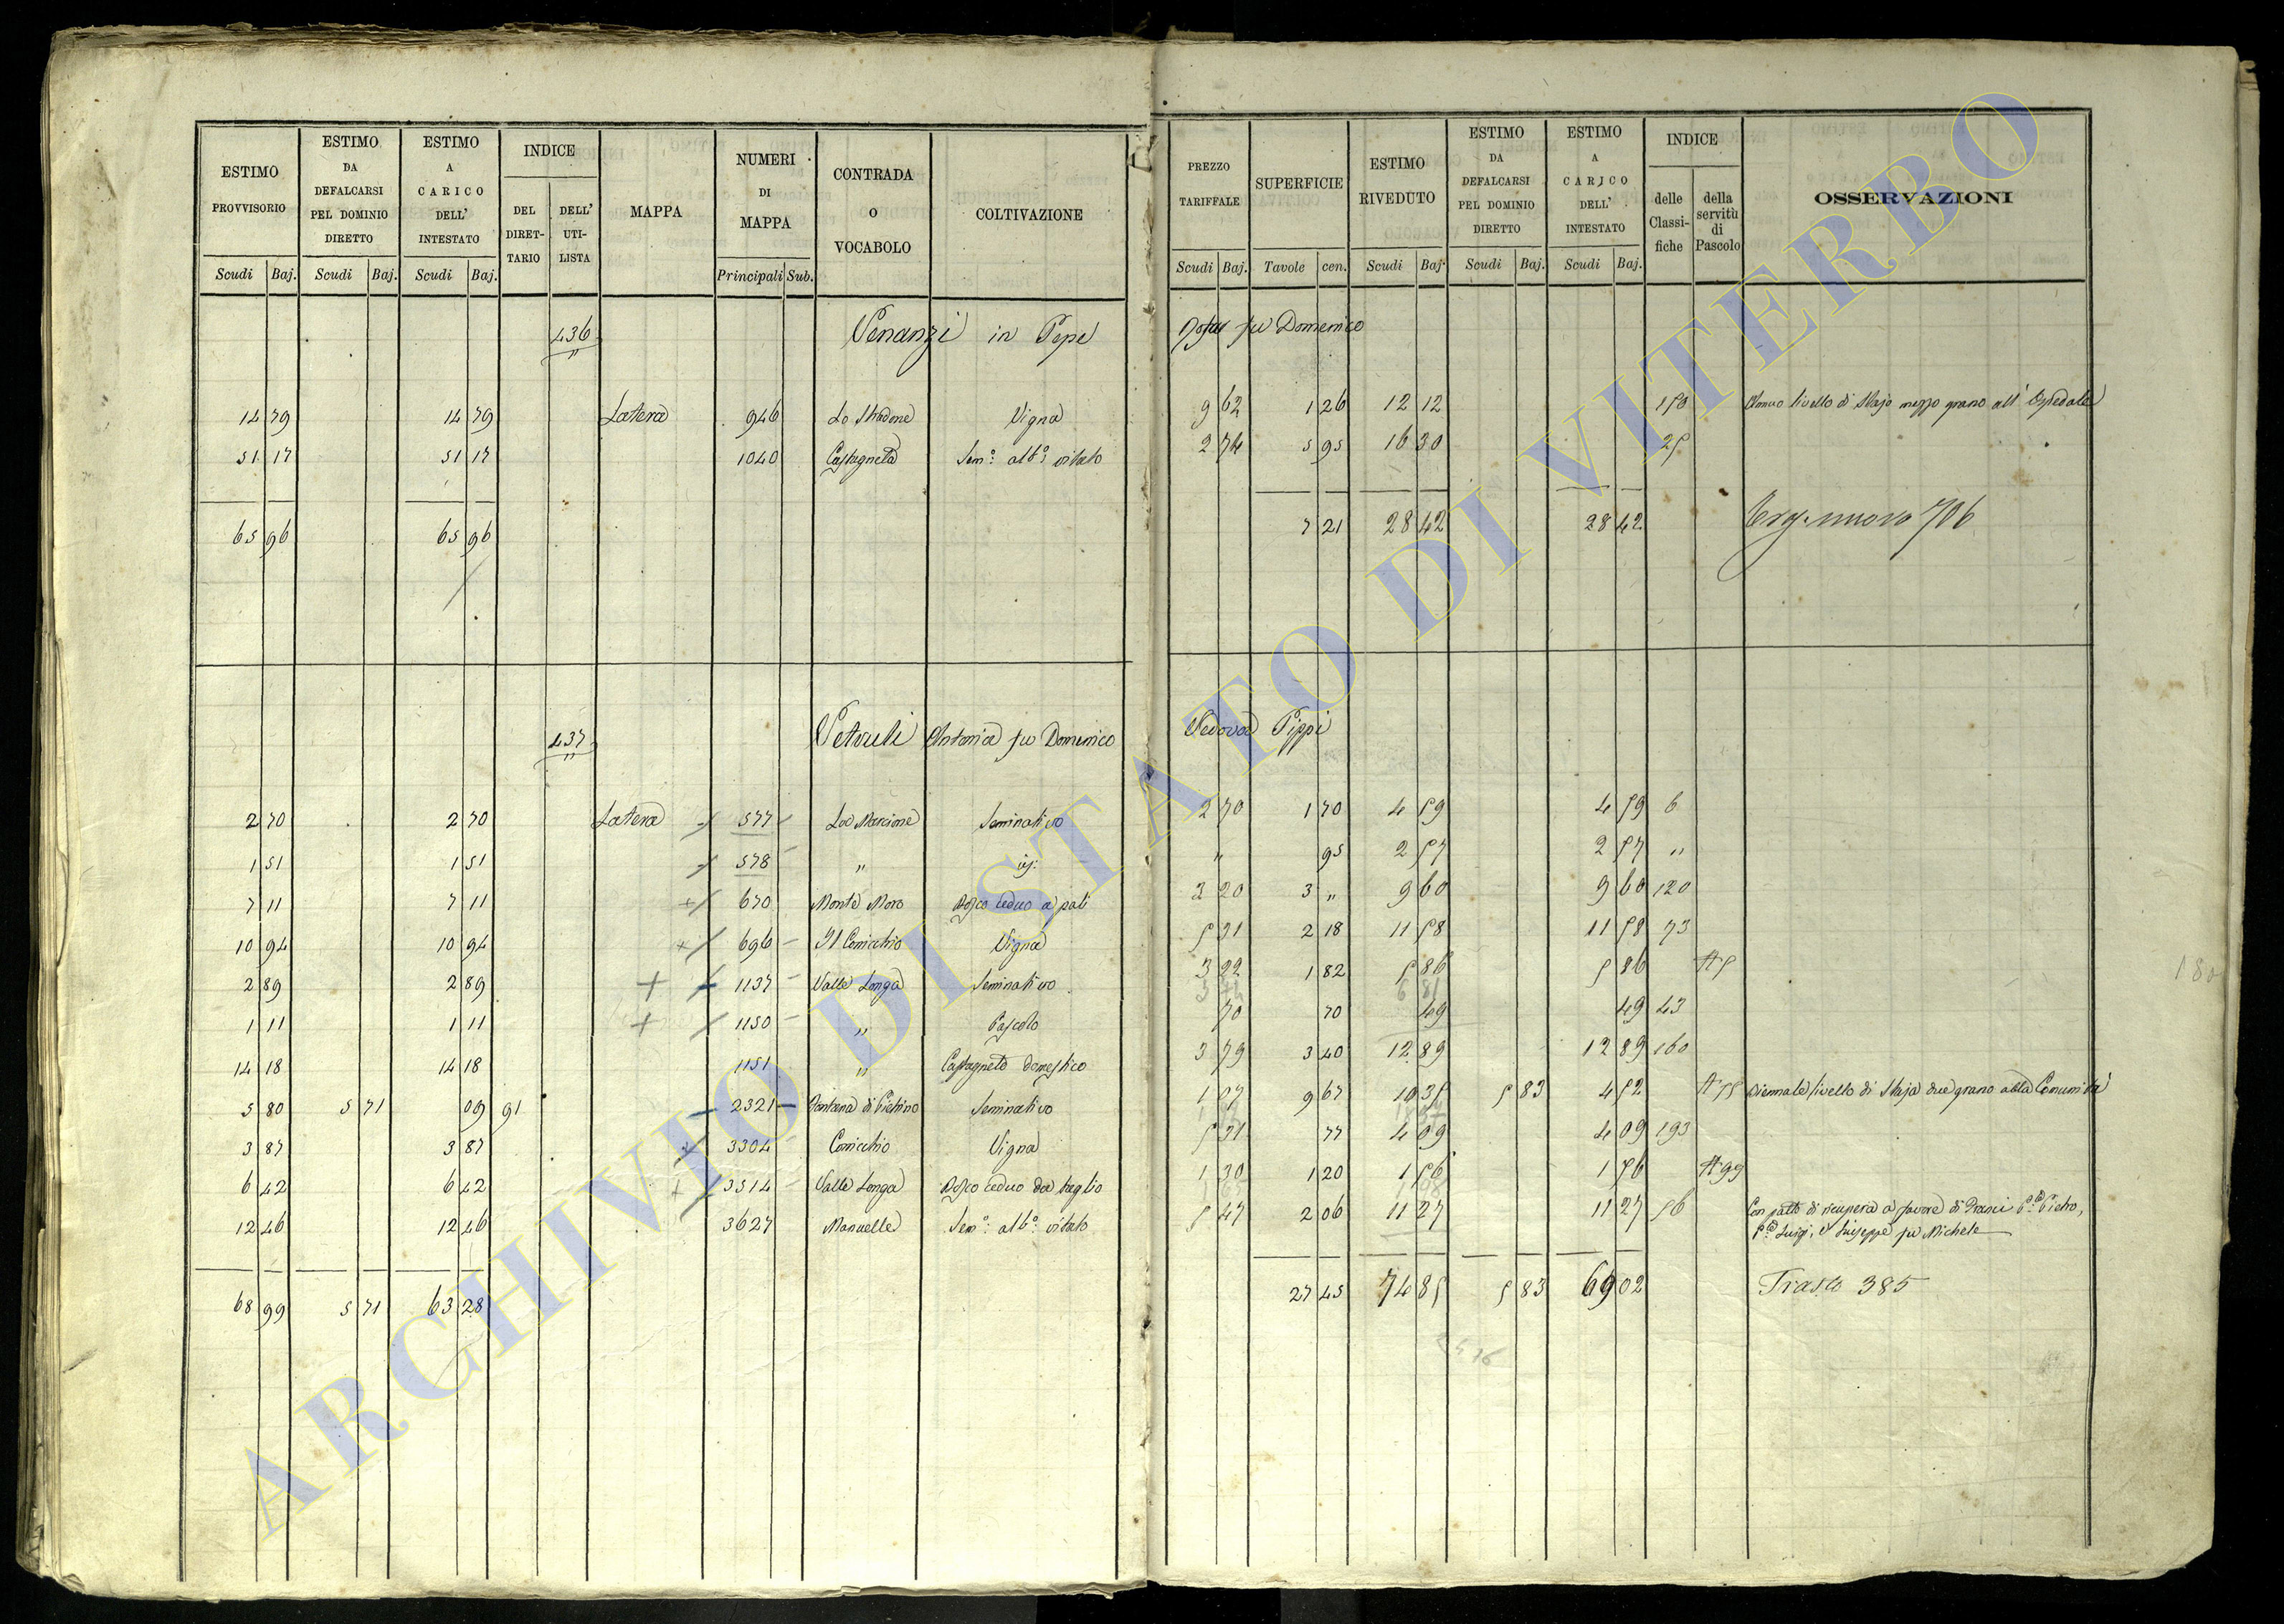 ESTIMO PROVVISORIO | ESTIMO DA DEFALCARSI PEL DOMINIO DIRETTO | ESTIMO A CARICO DELL' INTESTATO | INDICE | MAPPA | NUMERI DI MAPPA | CONTRADA O VOCABOLO | COLTIVAZIONE | PREZZO TARIFFALE | SUPERFICIE | ESTIMO RIVEDUTO | ESTIMO DA DEFALCARSI PEL DOMINIO DIRETTO | ESTIMO A CARICO DELL' INTESTATO | INDICE | OSSERVAZIONI
DEL DIRET-TARIO | DELL' UTI-LISTA | delle Classi-fiche | della servitù di Pascolo
Scudi Baj. | Scudi Baj. | Scudi Baj. | Principali Sub. | Scudi Baj. | Tavole cen. | Scudi Baj. | Scudi Baj. | Scudi Baj.
436 Venanzi in Pepe fu Domenico
14 79 | 14 79 | Latera | 946 | Lo Stradone | Vigna | 9 62 | 1 26 | 12 12 | 150 | Annuo livello di Staja mezzo grano all' Ospedale
51 17 | 51 17 | 1040 | Castagneta | Sem.o alb.o vitato | 2 74 | 5 95 | 16 30 | 25
65 96 | 65 96 | 7 21 | 28 42 | 28 42 | nuovo 706
437 Antonia fu Domenico Vedova Pippi
2 70 | 2 70 | Latera | 577 | Marcione | Seminativo | 2 70 | 1 70 | 4 59 | 4 59 | 6
1 51 | 1 51 | 578 | " | " | 95 | 2 57 | 2 57 | "
7 11 | 7 11 | 670 | Monte Moro | Bosco ceduo a pali | 3 20 | 3 " | 9 60 | 9 60 | 120
10 94 | 10 94 | 696 | Il Cornicchio | Vigna | 5 31 | 2 18 | 11 58 | 11 58 | 73
2 89 | 2 89 | 1137 | Valle Longa | Seminativo | 3 22 | 1 82 | 5 86 | 5 86 | A 5
1 11 | 1 11 | 1150 | " | Pascolo | 70 | 70 | 49 | 49 | 43
14 18 | 14 18 | 1151 | " | Castagneto domestico | 3 79 | 3 40 | 12 89 | 12 89 | 160
5 80 | 5 71 | 09 | 91 | 2321 | Fontana di Pietrino | Seminativo | 1 07 | 9 67 | 10 35 | 5 83 | 4 52 | Biennale livello di Staja due grano alla Comunità
3 87 | 3 87 | 3304 | Cornicchio | Vigna | 5 31 | 77 | 4 09 | 4 09 | 193
6 42 | 6 42 | 3314 | Valle Longa | Bosco ceduo da taglio | 1 30 | 1 20 | 1 56 | 1 56 | A 99
12 46 | 12 46 | 3627 | Manuelle | Sem.o alb.o vitato | 5 47 | 2 06 | 11 27 | 11 27 | 56 | Con patto di ricupera a favore di Pietro,
Luigi, e Giuseppe fu Michele
68 99 | 5 71 | 63 28 | 27 45 | 74 85 | 5 83 | 69 02 | Trasto 385
180
ARCHIVIO DI STATO DI VITERBO